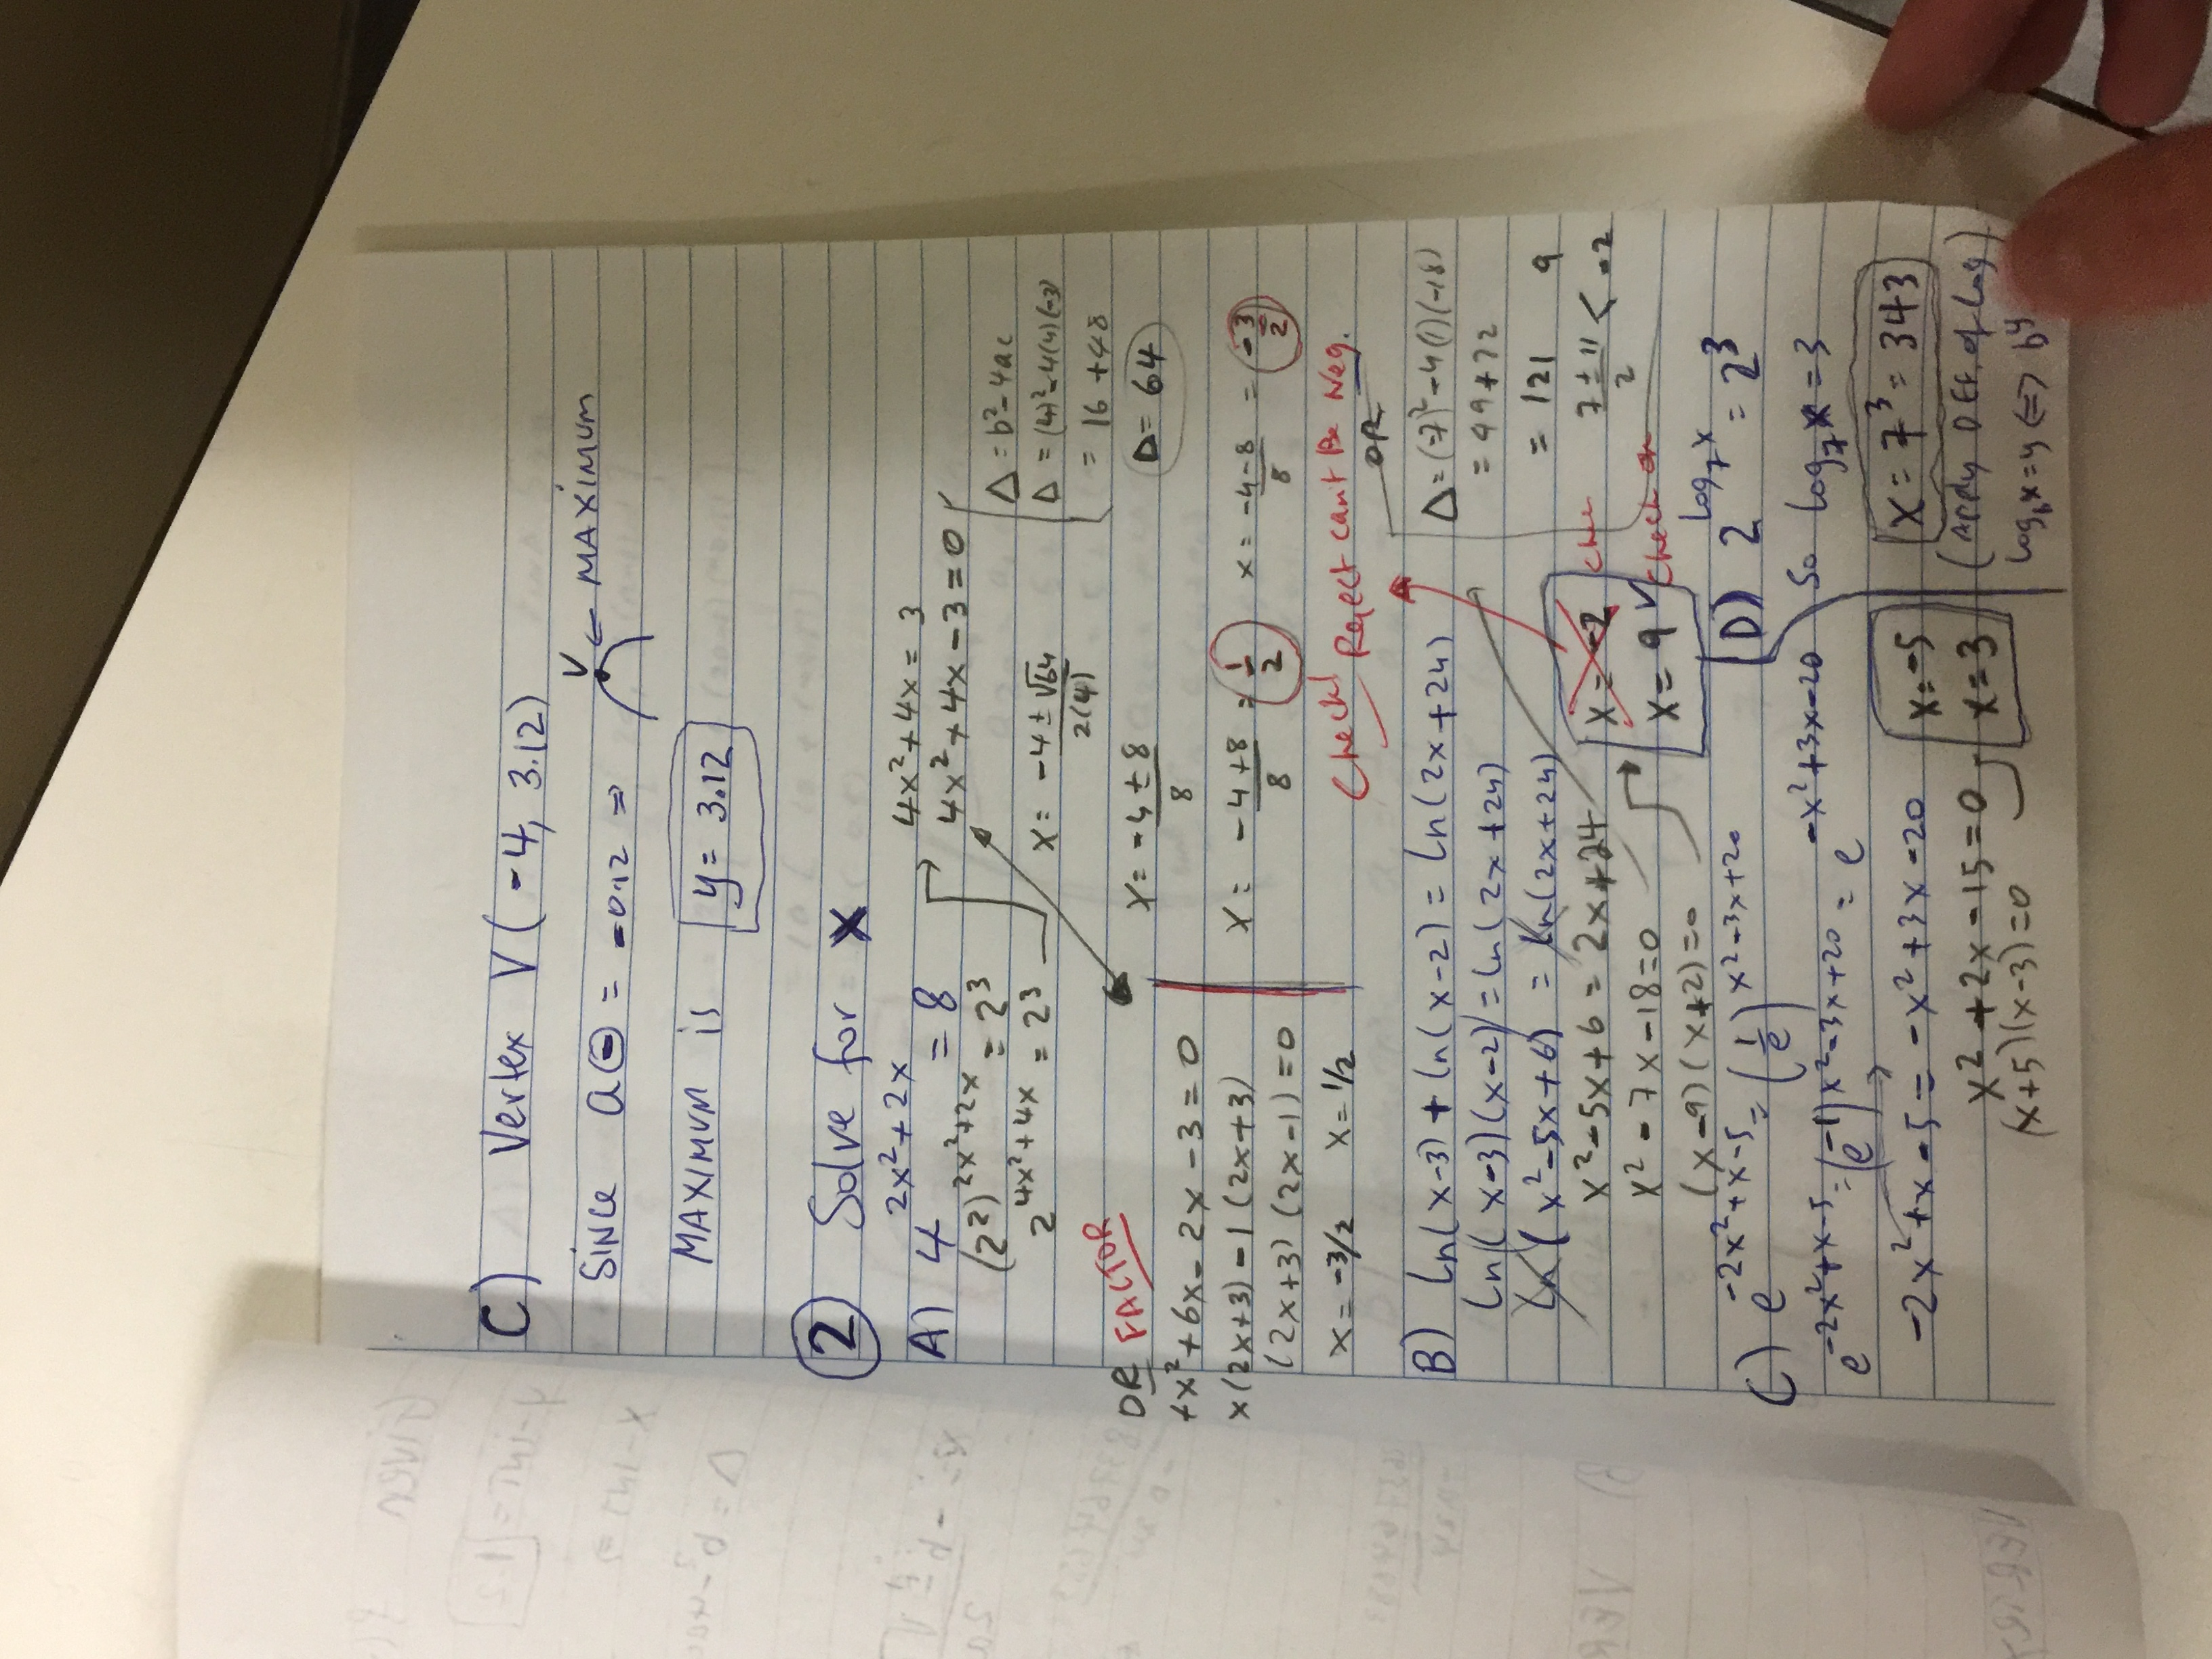 C) Vertex V(-4, 3.12)
Since a⊖ = -0.12 ⇒ V ← MAXIMUM
MAXIMUM is y = 3.12
② Solve for x
A) 4^(2x²+2x) = 8
(2²)^(2x²+2x) = 2³
2^(4x²+4x) = 2³
4x²+4x = 3
4x²+4x-3=0
Δ = b²-4ac
Δ = (4)²-4(4)(-3)
= 16+48
D = 64
x = (-4 ± √64)/2(4)
x = (-4 ± 8)/8
x = (-4+8)/8 = 1/2
x = (-4-8)/8 = -3/2
OR FACTOR
4x²+6x-2x-3=0
x(2x+3)-1(2x+3)
(2x+3)(2x-1)=0
x = -3/2 x = 1/2
Check! Reject can't Be Neg.
B) ln(x-3)+ln(x-2) = ln(2x+24)
ln(x-3)(x-2) = ln(2x+24)
ln(x²-5x+6) = ln(2x+24)
x²-5x+6 = 2x+24
x²-7x-18=0
(x-9)(x+2)=0
x=-2
x=9 ✓
OR
Δ = (-7)²-4(1)(-18)
= 49+72
= 121
(7±11)/2 < 9
-2
C) e^(-2x²+x-5) = (1/e)^(x²-3x+20)
e^(-2x²+x-5) = (e^-1)^(x²-3x+20) = e^(-x²+3x-20)
-2x²+x-5 = -x²+3x-20
x²+2x-15=0
(x+5)(x-3)=0
x=-5
x=3
D) 2^(log₇x) = 2³
So log₇x = 3
x = 7³ = 343
(Apply DEF. of Log)
log_b x = y ⇔ b^y